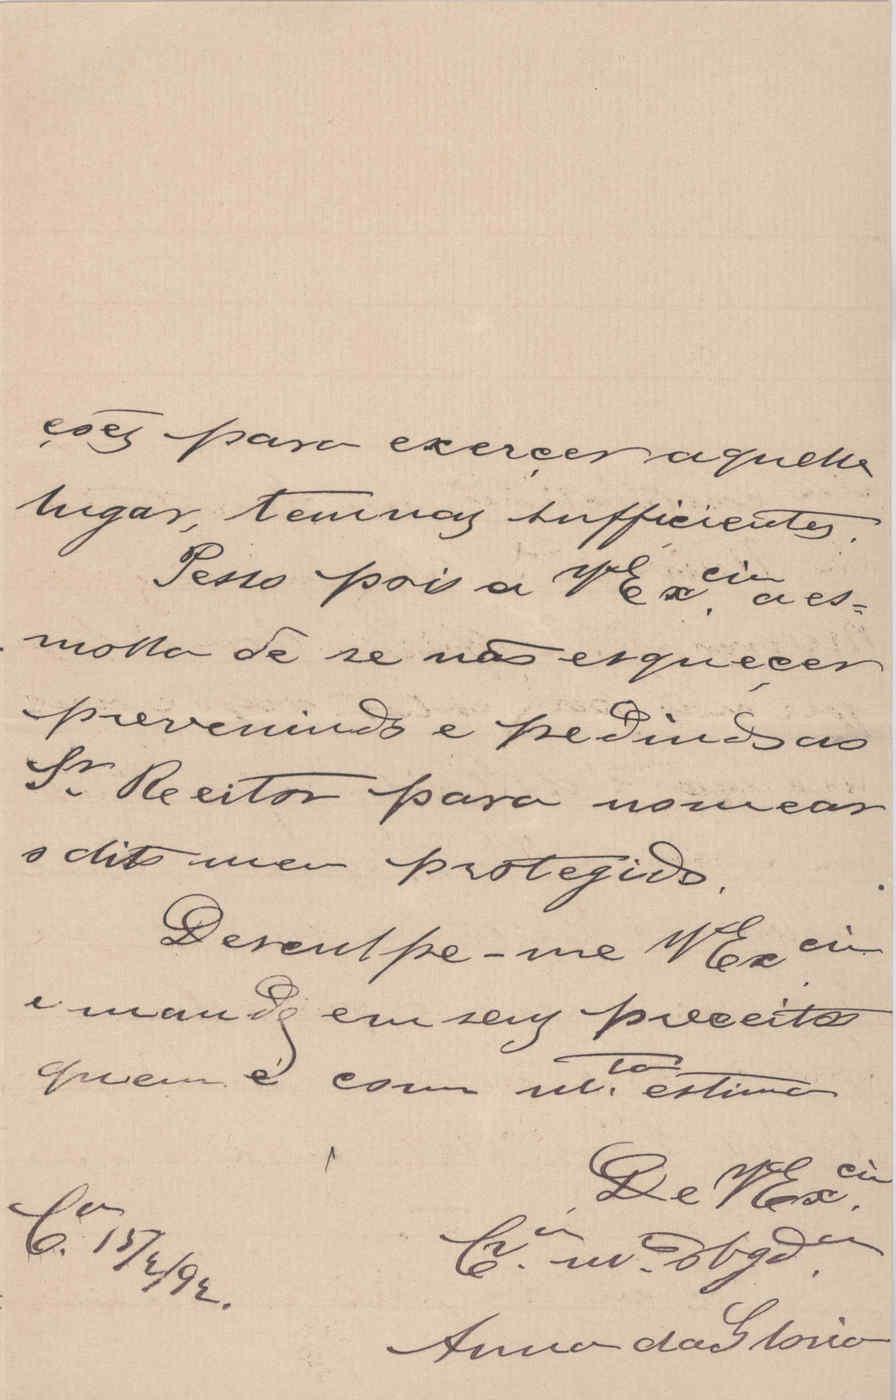 ções para exerçer aquelle
lugar, temnas sufficientes.
Pesso pois a VExcia a es=
molla de se não esqueçer
prevenindo e pedindo ao
Sr. Reeitor para nomear
o dito meu protegido.
Desculpe-me VExcia
e mande em seus preceitos
quem é com mta estima
De VExcia
Cra. mo. obgda.
C.a 15/2/92.
Anna da Gloria